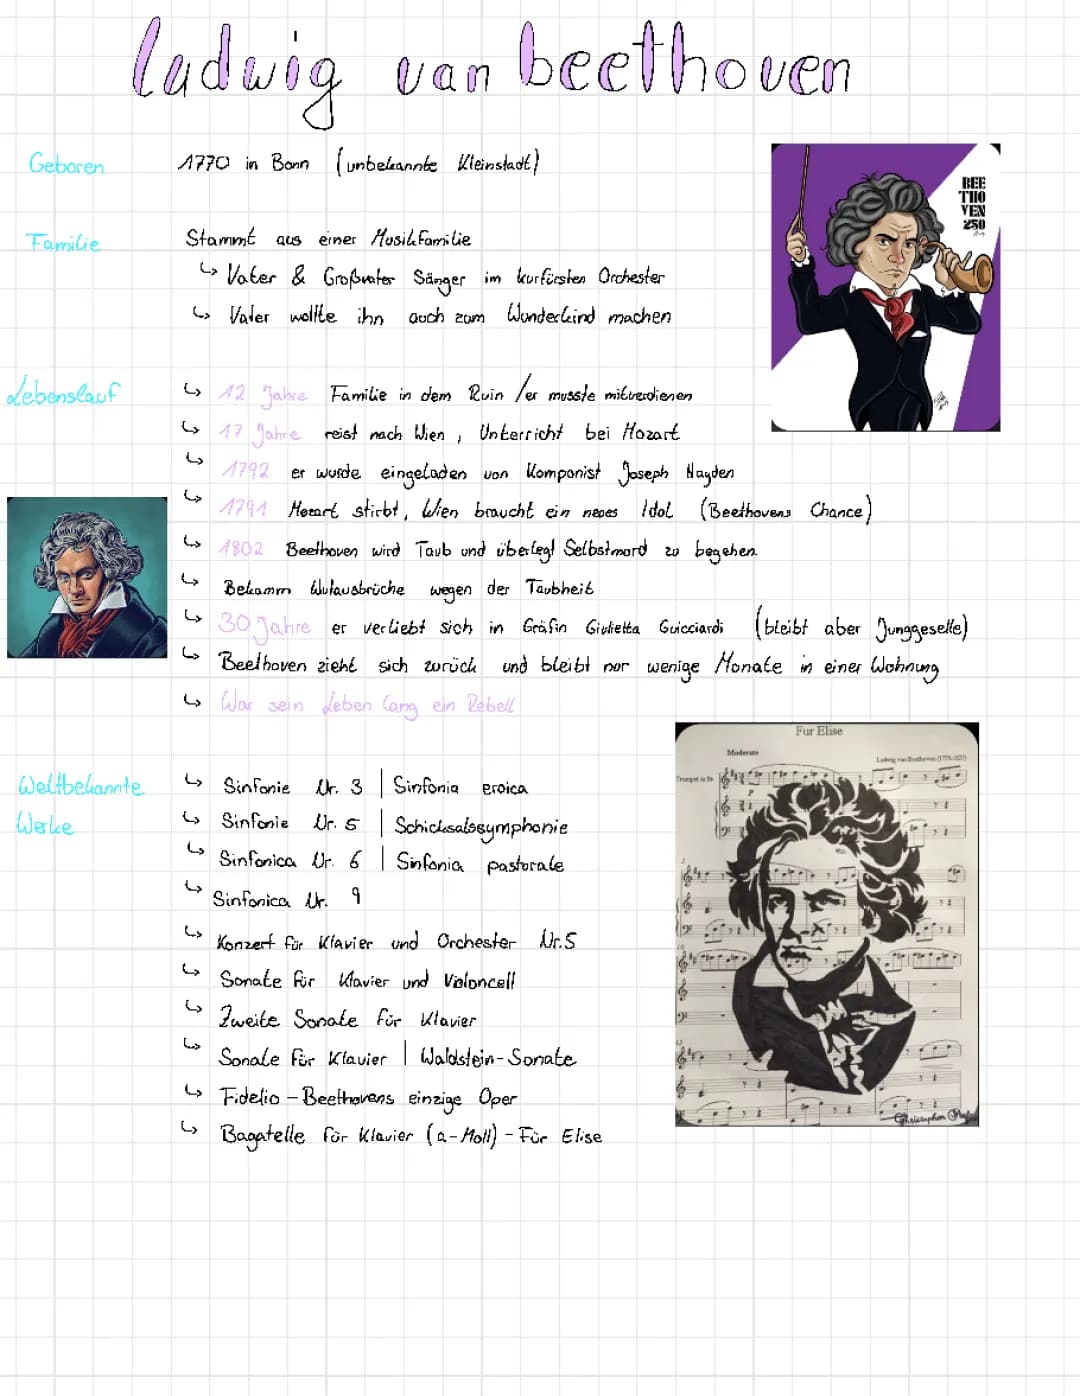 ludwig van beethoven
Geboren 1770 in Bonn (unbekannte Kleinstadt)
BEE
THO
VEN
250
Familie Stammt aus einer Musikfamilie
↳ Vater & Großvater Sänger im kurfürsten Orchester
↳ Vater wollte ihn auch zum Wunderkind machen
Lebenslauf ↳ 12 Jahre Familie in dem Ruin /er musste mitverdienen
↳ 17 Jahre reist nach Wien, Unterricht bei Mozart
↳ 1792 er wurde eingeladen von Komponist Joseph Hayden
↳ 1791 Mozart stirbt, Wien braucht ein neues Idol (Beethovens Chance)
↳ 1802 Beethoven wird Taub und überlegt Selbstmord zu begehen
↳ Bekamm Wutausbrüche wegen der Taubheit
↳ 30 Jahre er verliebt sich in Gräfin Giulietta Guicciardi (bleibt aber Junggeselle)
↳ Beethoven zieht sich zurück und bleibt nur wenige Monate in einer Wohnung
↳ War sein Leben lang ein Rebell
Weltbekannte Werke
↳ Sinfonie Nr. 3 | Sinfonia eroica
↳ Sinfonie Nr. 5 | Schicksalssymphonie
↳ Sinfonica Nr. 6 | Sinfonia pastorale
↳ Sinfonica Nr. 9
↳ Konzert für Klavier und Orchester Nr.5
↳ Sonate für Klavier und Violoncell
↳ Zweite Sonate für Klavier
↳ Sonate für Klavier | Waldstein-Sonate
↳ Fidelio - Beethovens einzige Oper
↳ Bagatelle für Klavier (a-Moll) - Für Elise
Fur Elise
Moderato
Ludwig van Beethoven (1770-1827)
Trumpet in Bb